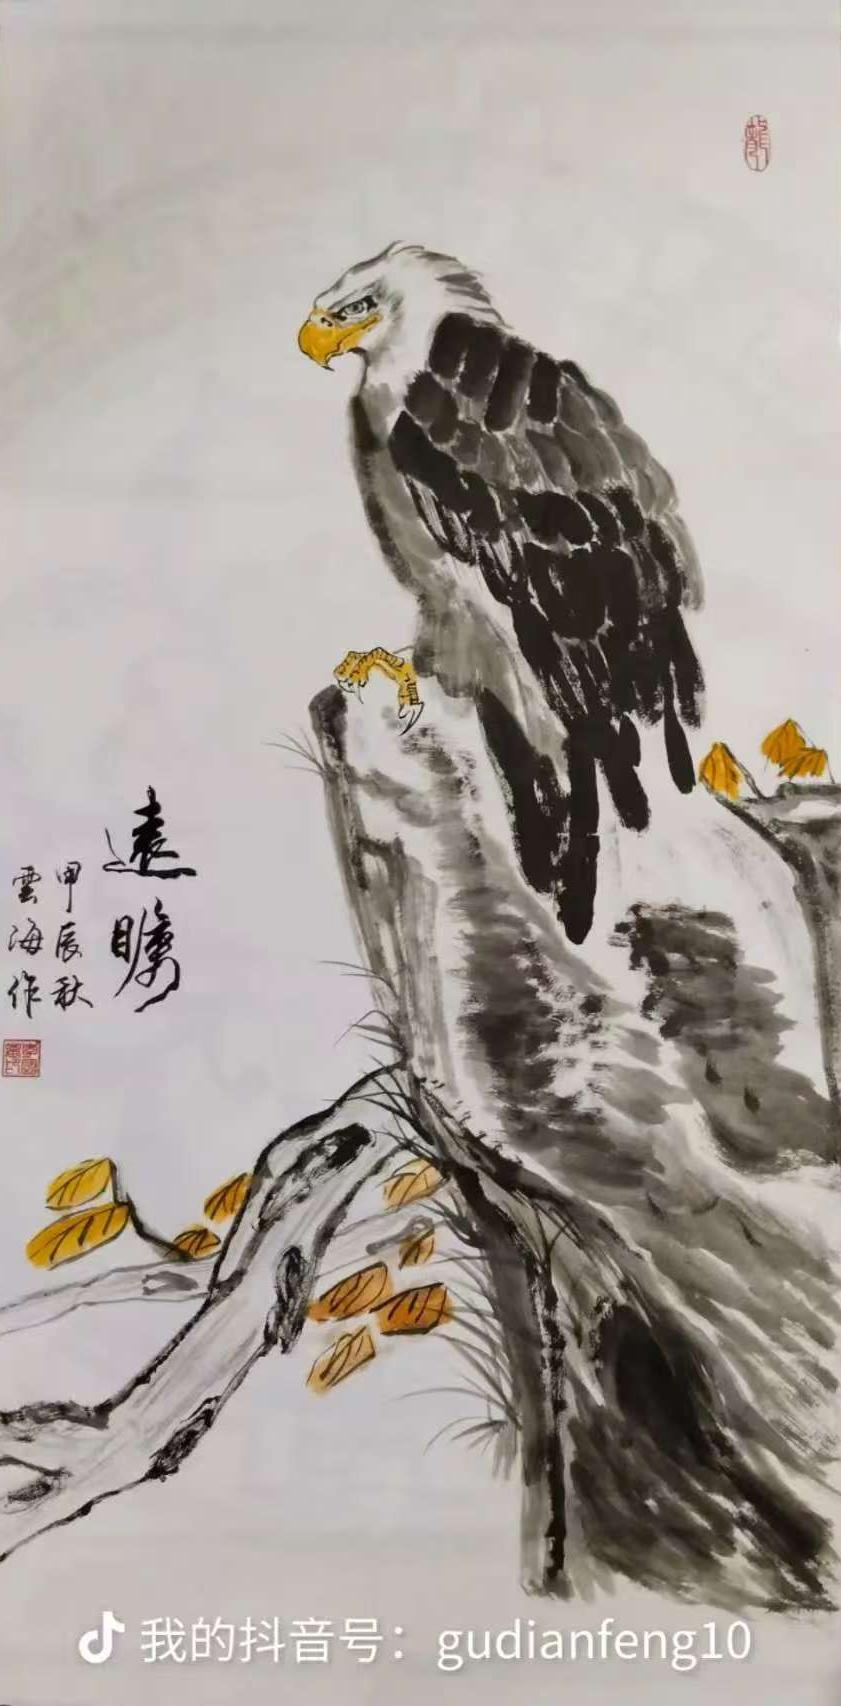 遠瞻
甲辰秋
雲海作
我的抖音号：gudianfeng10